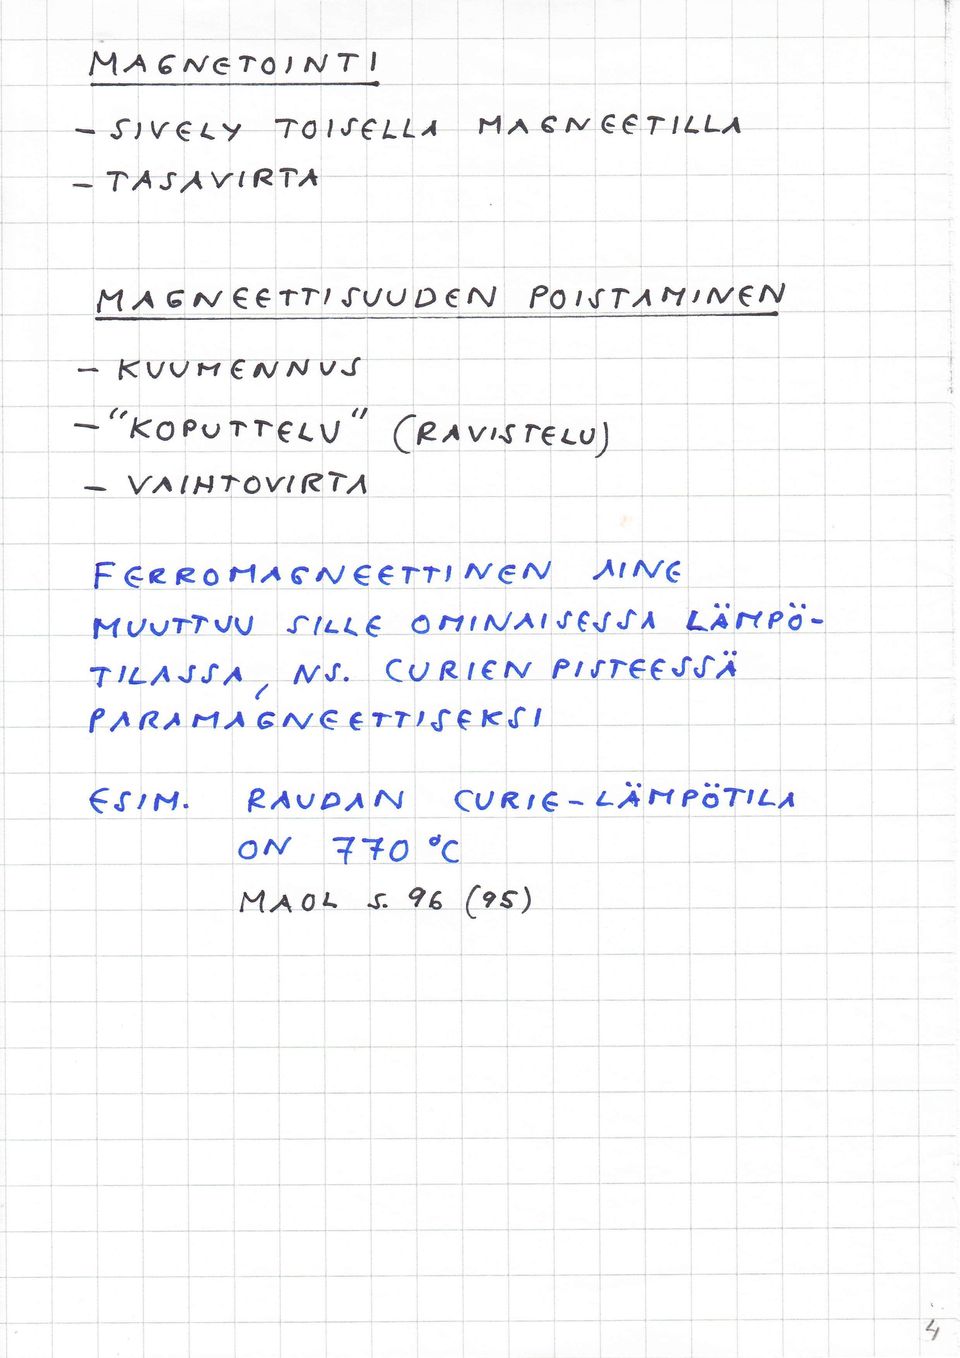 MAGNETOINTI
- SIVELY TOISELLA MAGNEETILLA
- TASAVIRTA
MAGNEETTISUUDEN POISTAMINEN
- KUUMENNUS
- "KOPUTTELU" (RAVISTELU)
- VAIHTOVIRTA
FERROMAGNEETTINEN AINE
MUUTTUU SILLE OMINAISESSA LÄMPÖ-
TILASSA, NS. CURIEN PISTEESSÄ
PARAMAGNEETTISEKSI
ESIM. RAUDAN CURIE-LÄMPÖTILA
ON 770 °C
MAOL s. 96 (95)
4